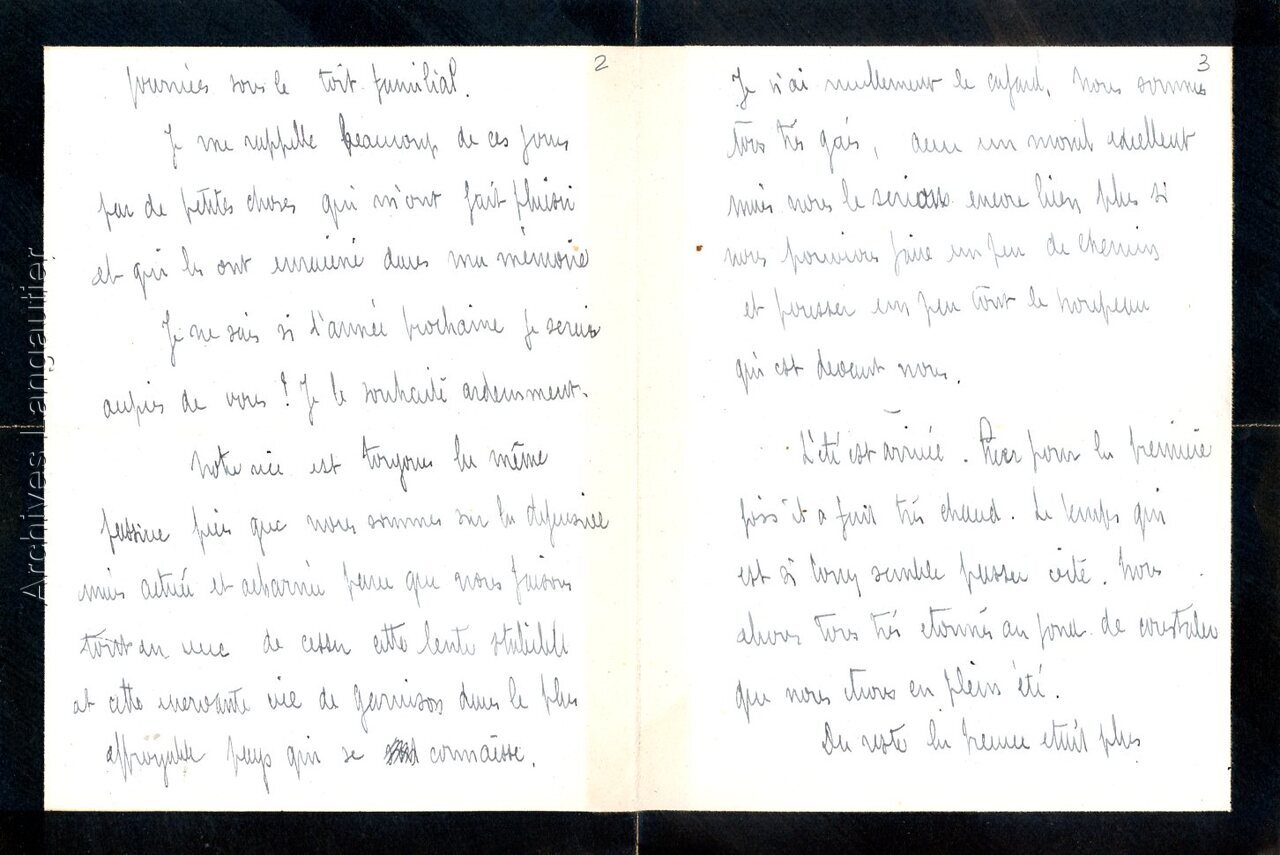 2
journées sous le toit familial.
Je me rappelle beaucoup de ces jours
par de petites choses qui m'ont fait plaisir
et qui les ont enraciné dans ma mémoire
Je ne sais si l'année prochaine je serais
auprès de vous ! Je le souhaite ardemment.
Notre vie est toujours la même
passive puis que nous sommes sur la défensive
mais active et acharnée parce que nous faisons
tout en vue de cesser cette lente stabilité
et cette énervante vie de garnison dans le plus
effroyable pays qui se connaisse.
3
Je n'ai nullement le cafard, nous sommes
tous très gais, avec un moral excellent
mais nous le serions encore bien plus si
nous pouvions faire un peu de chemin
et pousser un peu tout le troupeau
qui est devant nous.
L'été est arrivé. Hier pour la première
fois il a fait très chaud. Le temps qui
est si long semble passer vite. Nous
étions tous très étonnés au fond de constater
que nous étions en plein été.
Du reste la preuve était plus
Archives Langautier